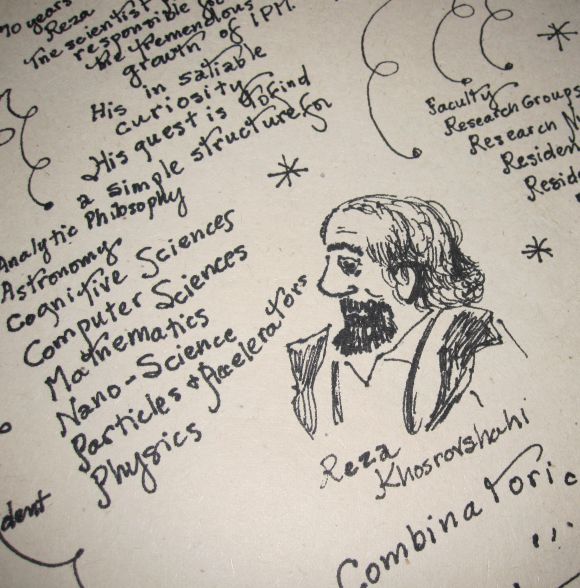 70 years
Reza
The scientist
responsible for
the tremendous
growth of IPM.
His in satiable
curiosity
His quest is to find
a simple structure for
Analytic Philosophy
Astronomy
Cognitive Sciences
Computer Sciences
Mathematics
Nano-Science
Particles & Accelerators
Physics
Faculty
Research Groups
Research
Residen
Resid
Reza
Khosrovshahi
Combinatoric
...
dent